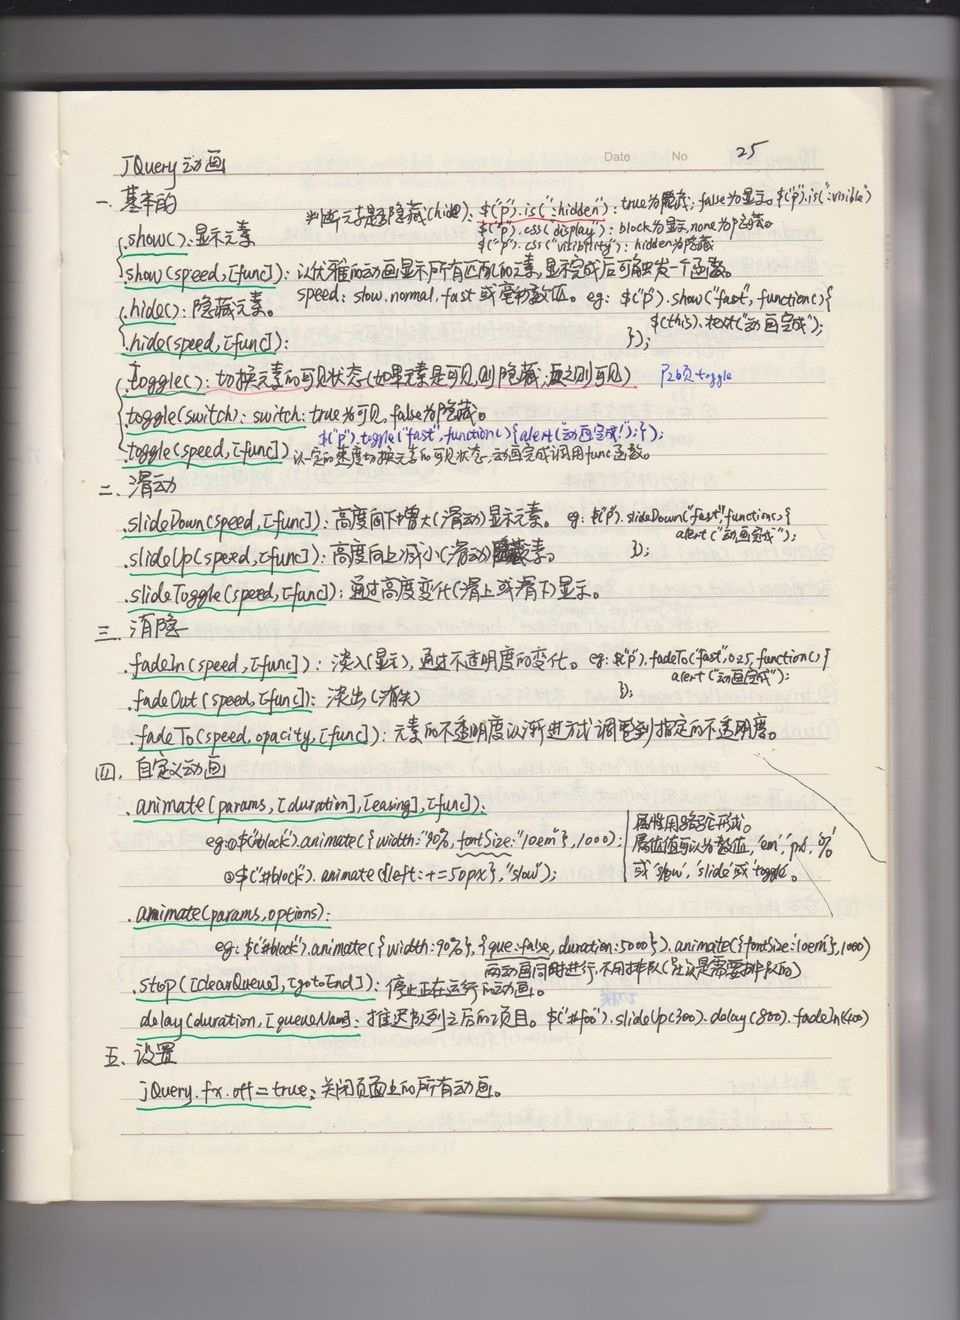 Date No 25
JQuery 动画
一. 基本的
判断元素是否隐藏(hide): $("p").is(":hidden"): true为隐藏; false为显示。$("p").is(":visible")
$("p").css(display"): block为显示, none为隐藏。
.show(): 显示元素
$("p").css("visibility"): hidden为隐藏
show(speed, [func]): 以优雅的动画显示所有匹配的元素, 显示完成后可触发一个函数。
speed: slow.normal.fast 或毫秒数值。 eg: $("p").show("fast", function(){
.hide(): 隐藏元素。
$(this).text("动画完成");
.hide(speed, [func]):
});
.toggle(): 切换元素的可见状态(如果元素是可见, 则隐藏; 反之则可见) P26页toggle
toggle(switch): switch: true为可见, false为隐藏。
$("p").toggle("fast", function(){alert(动画完成!");});
toggle(speed, [func]) 以一定的速度切换元素的可见状态, 动画完成调用func函数。
二. 滑动
.slideDown(speed, [func]): 高度向下增大(滑动)显示元素。 eg: $("p").slideDown("fast", function(){
alert("动画完成");
.slideUp(speed, [func]): 高度向上减小(滑动)隐藏元素。 });
.slideToggle(speed, [func]): 通过高度变化(滑上或滑下)显示。
三. 消隐
.fadeIn(speed, [func]): 淡入(显示), 通过不透明度的变化。 eg: $("p").fadeTo("fast", 0.25, function(){
alert("动画完成");
.fadeOut(speed, [func]): 淡出(消失) });
.fadeTo(speed, opacity, [func]): 元素的不透明度以渐进方式调整到指定的不透明度。
四. 自定义动画
.animate(params, [duration], [easing], [func]):
eg:①$("#block").animate({width:"90%, fontSize:"10em"}, 1000):
属性用骆驼形式。
属性值可以为数值, 'em', 'px', '%'
②$("#block").animate({left:+=50px}, "slow");
或'show', 'slide'或'toggle'。
.animate(params, options):
eg: $("#block").animate({width:90%}, {que:false, duration:5000}).animate({fontSize:'10em'}, 1000)
两动画同时进行, 不用排队
.stop([clearQueue], [gotoEnd]): 停止正在运行的动画。
delay(duration, [queueName]: 推迟队列之后的项目。 $('#foo').slideUp(300).delay(800).fadeIn(400)
五. 设置
jQuery.fx.off = true; 关闭页面上的所有动画。